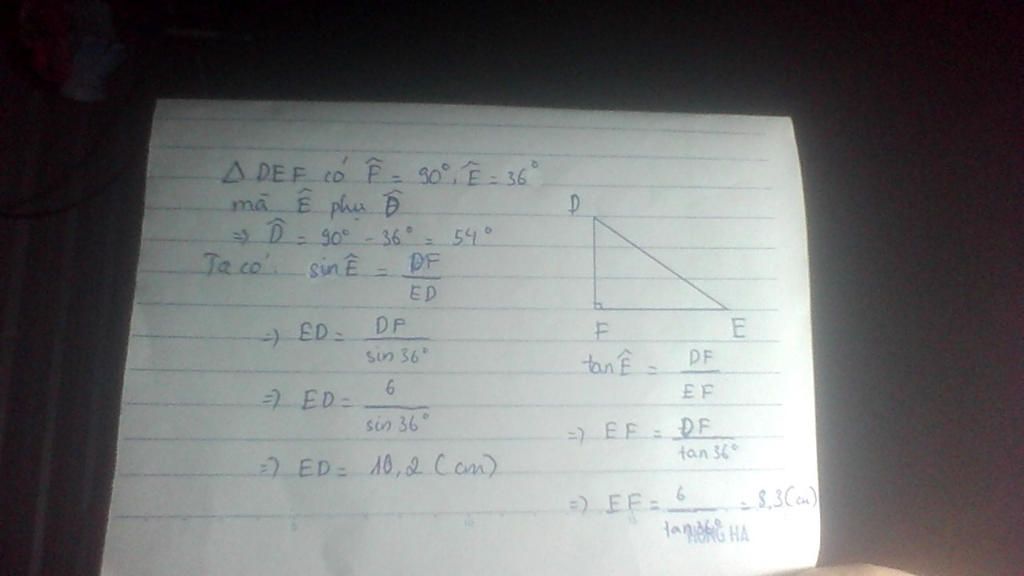 Δ DEF có F̂ = 90°, Ê = 36°
mà Ê phụ D̂
=> D̂ = 90° - 36° = 54°
Ta có: sin Ê = DF/ED
=> ED = DF/sin 36°
=> ED = 6/sin 36°
=> ED = 10,2 (cm)
D
F E
tan Ê = DF/EF
=> EF = DF/tan 36°
=> EF = 6/tan 36° = 8,3 (cm)
HONG HA